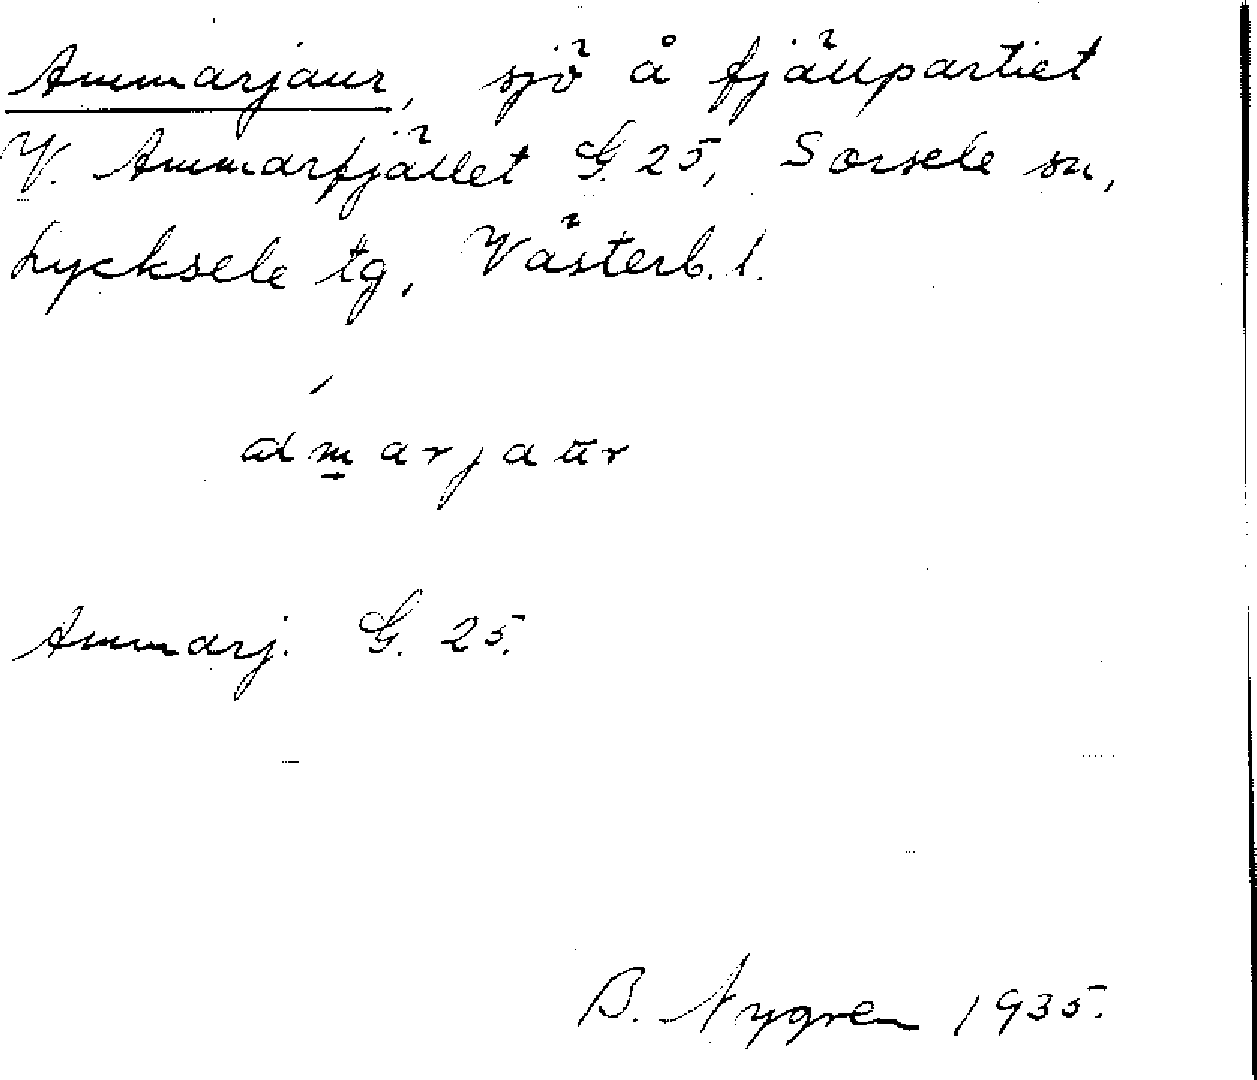 Ammarjaur, sjö å fjällpartiet
V. Ammarfjället G. 25, Sorsele sn,
Lycksele tg, Västerb. l.
ámarjaur
Ammarj. G. 25.
B. Nygren 1935.